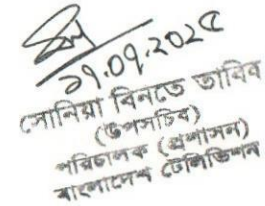 ২১.০৭.২০২৫
সোনিয়া বিনতে তাবিব
(উপসচিব)
পরিচালক (প্রশাসন)
বাংলাদেশ টেলিভিশন